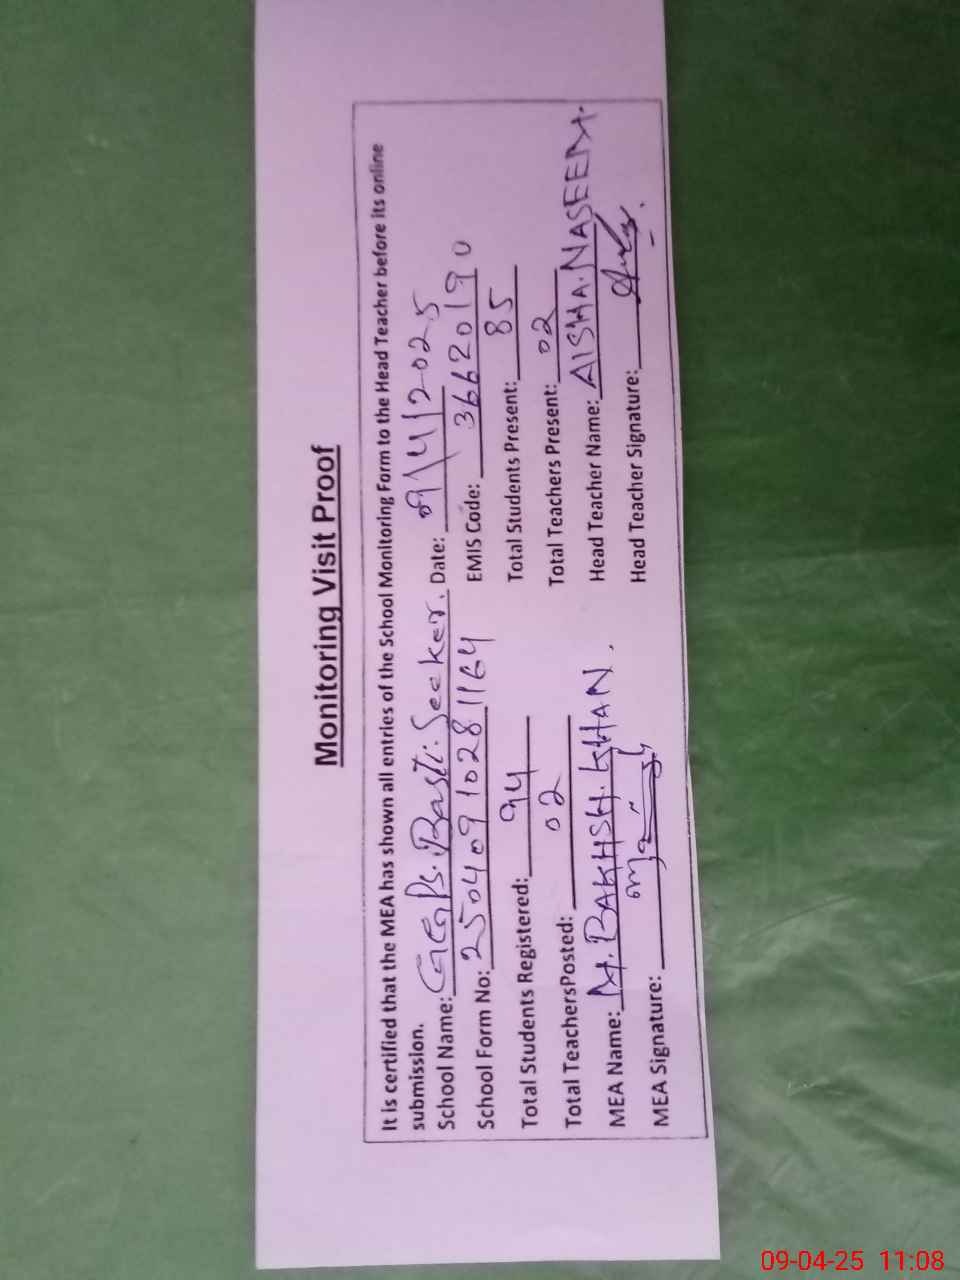 Monitoring Visit Proof
It is certified that the MEA has shown all entries of the School Monitoring Form to the Head Teacher before its online
submission.
School Name: GGPS. Basti. Seeker. Date: 09/4/2025
School Form No: 25040910281164 EMIS Code: 36620190
Total Students Registered: 94 Total Students Present: 85
Total TeachersPosted: 02 Total Teachers Present: 02
MEA Name: M. BAKHSH. KHAN. Head Teacher Name: AISHA. NASEEM.
MEA Signature: Head Teacher Signature:
09-04-25 11:08